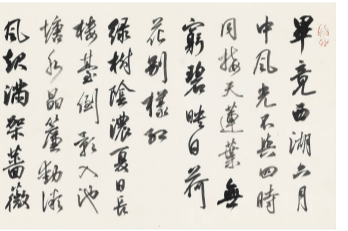 畢竟西湖六月
中風光不與四時
同接天蓮葉無
窮碧映日荷
花別樣紅
綠樹陰濃夏日長
樓臺倒影入池
塘水晶簾動微
風起滿架薔薇